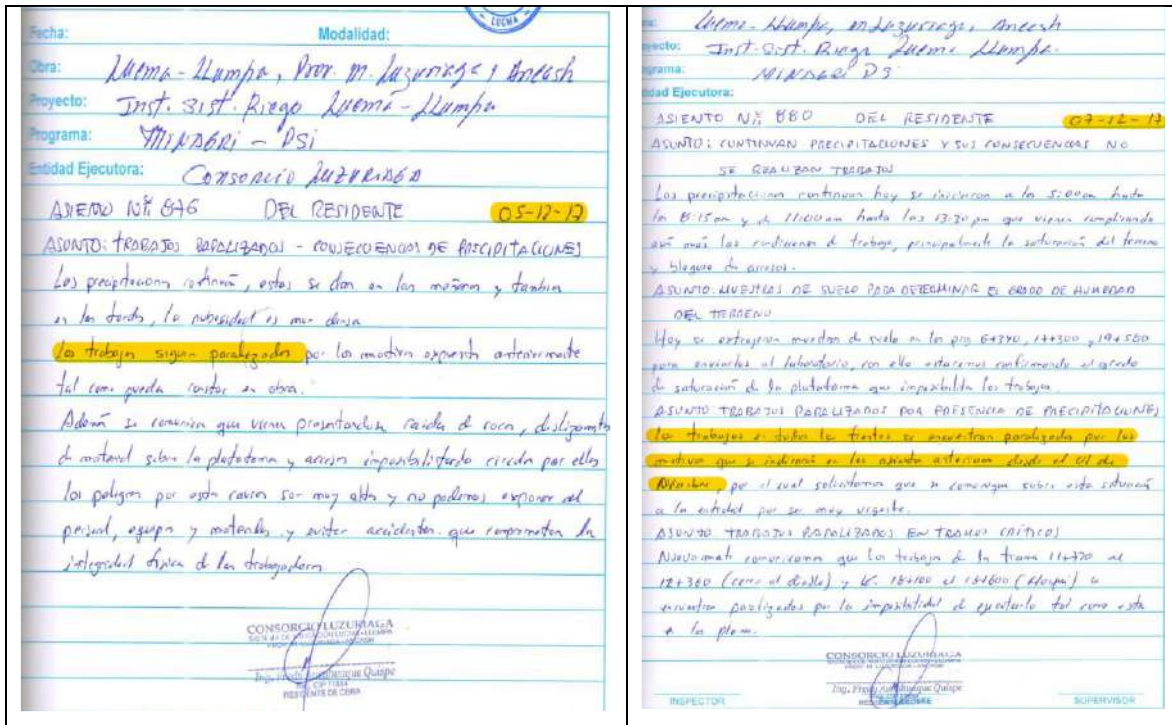 LUCMA
Fecha: Modalidad:
Obra: Lucma - Llumpa, Prov. M. Luzuriaga, Ancash
Proyecto: Inst. Sist. Riego Lucma - Llumpa
Programa: MINAGRI - PSI
Entidad Ejecutora: CONSORCIO LUZURIAGA
ASIENTO Nº 876 DEL RESIDENTE 05-12-17
ASUNTO: TRABAJOS PARALIZADOS - CONSECUENCIAS DE PRECIPITACIONES
Las precipitaciones continúa, estas se dan en las mañanas y tambien
en las tardes, la nubosidad es muy densa
Los trabajos siguen paralizados por los motivos expuesto anteriormente
tal como puede constar en obra.
Además se comunica que vienen presentandose caida de rocas, deslizamiento
de material sobre la plataforma y accesos imposibilitando circular por ellos
los peligros por estas causas son muy altos y no podemos exponer al
personal, equipos y materiales y evitar accidentes que comprometan la
integridad física de los trabajadores
CONSORCIO LUZURIAGA
Quispe
RESIDENTE DE OBRA
Lucma - Llumpa, M. Luzuriaga, Ancash
Inst. Sist. Riego Lucma Llumpa.
MINAGRI PSI
Ejecutora:
ASIENTO Nº 880 DEL RESIDENTE 07-12-17
ASUNTO: CONTINUAN PRECIPITACIONES Y SUS CONSECUENCIAS NO
SE REALIZAN TRABAJOS
Las precipitaciones continuan hoy se iniciaron a las 5:00am hasta
las 8:15am y de 11:00am hasta las 13:30 pm que vienen complicando
aún más las condiciones de trabajo, principalmente la saturación del terreno
y bloqueo de accesos.
ASUNTO: MUESTRAS DE SUELO PARA DETERMINAR EL GRADO DE HUMEDAD
DEL TERRENO
Hoy se extrajeron muestras de suelo en las prog
para enviarlas al laboratorio, con ello estaremos confirmando el grado
de saturación de la plataforma que imposibilita los trabajos.
ASUNTO TRABAJOS PARALIZADOS POR PRESENCIA DE PRECIPITACIONES
Los trabajos en todos los frentes se encuentran paralizados por los
motivos que se indicaron en los asientos anteriores desde el 01 de
Diciembre, por el cual solicitamos que se comunique sobre esta situación
a la entidad por ser muy urgente.
ASUNTO TRABAJOS PARALIZADOS EN TRAMOS CRITICOS
Nuevamente comunicamos que los trabajos de los tramos al
12+380 y se
encuentran paralizados por la imposibilidad de ejecutarlo tal como esta
en los planos.
CONSORCIO LUZURIAGA
Quispe
INSPECTOR SUPERVISOR